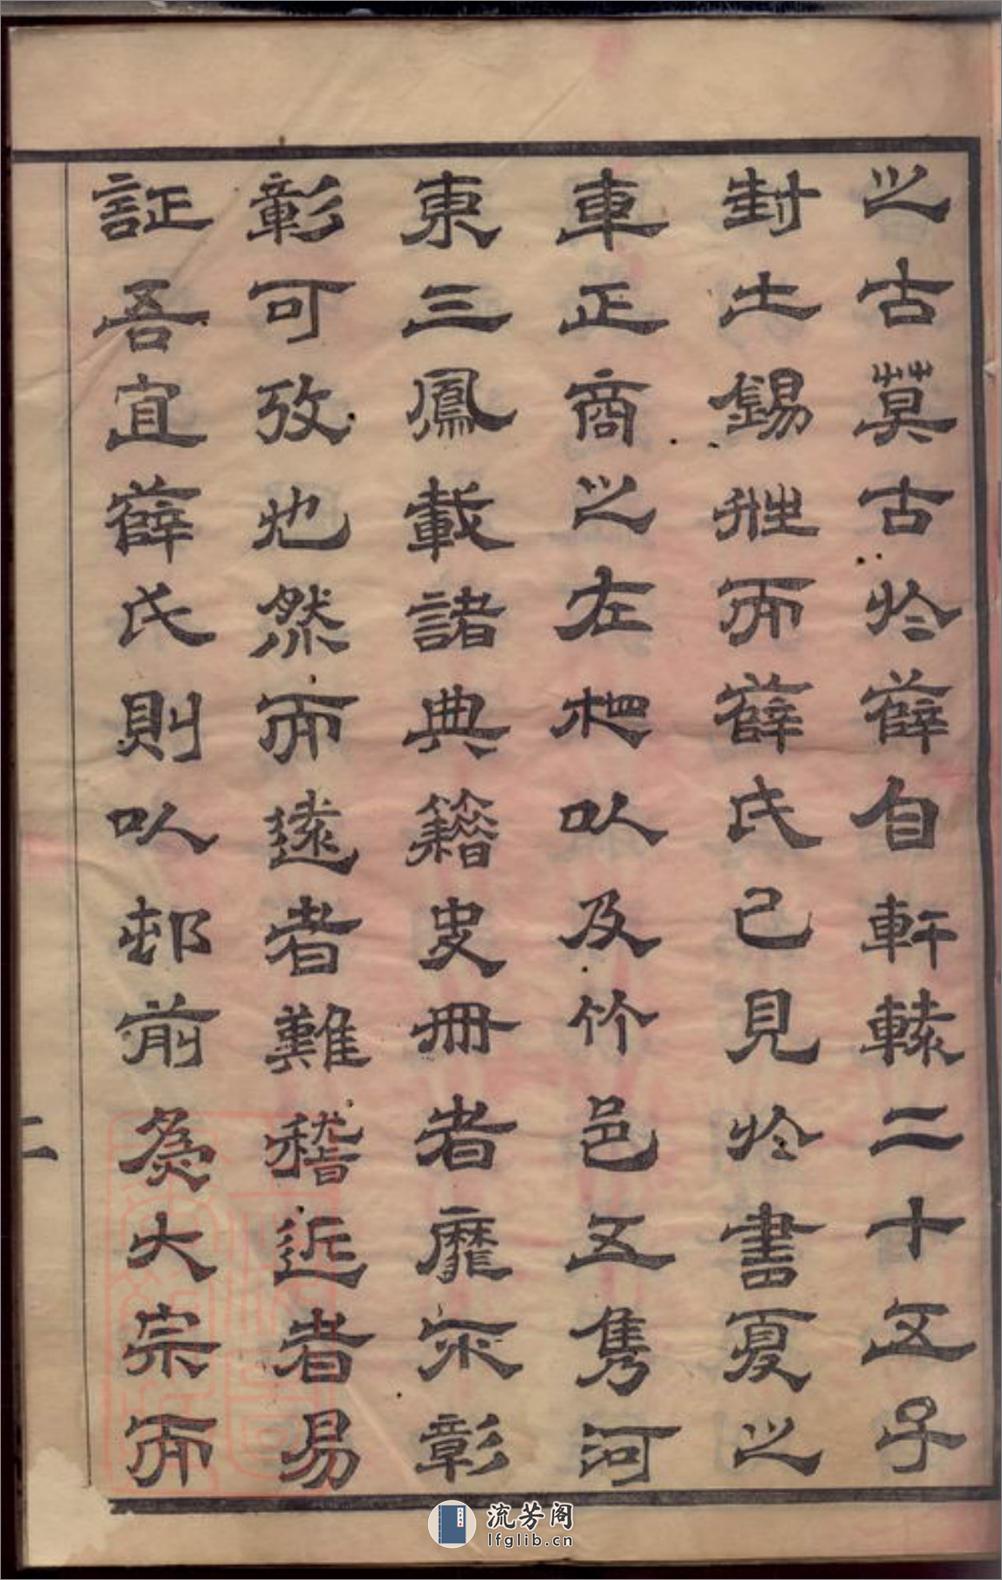 之古莫古於薛自軒轅二十五子
封土錫姓而薛氏已見於書夏之
車正商之左相以及竹邑五雋河
東三鳳載諸典籍史冊者靡不彰
彰可攷也然而遠者難稽近者易
証吾宜薛氏則以邨前為大宗而
二
流芳阁
lfglib.cn